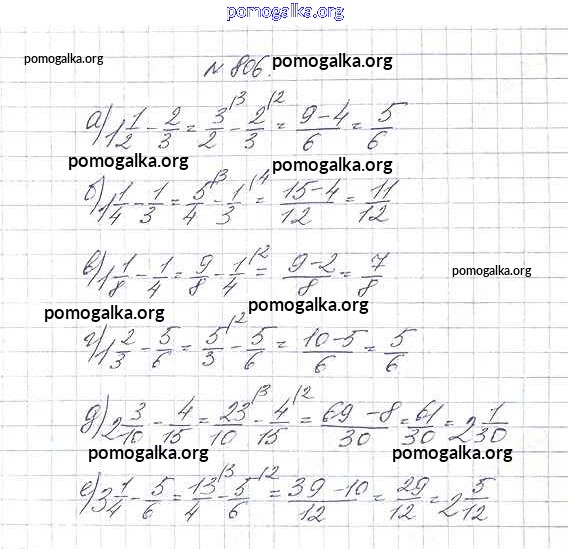 pomogalka.org
pomogalka.org № 806. pomogalka.org
а) 1 1/2 - 2/3 = 3/2 |3 - 2/3 |2 = (9-4)/6 = 5/6
pomogalka.org pomogalka.org
б) 1 1/4 - 1/3 = 5/4 |3 - 1/3 |4 = (15-4)/12 = 11/12
в) 1 1/8 - 1/4 = 9/8 - 1/4 |2 = (9-2)/8 = 7/8
pomogalka.org
pomogalka.org pomogalka.org
г) 1 2/3 - 5/6 = 5/3 |2 - 5/6 = (10-5)/6 = 5/6
д) 2 3/10 - 4/15 = 23/10 |3 - 4/15 |2 = (69-8)/30 = 61/30 = 2 1/30
pomogalka.org pomogalka.org
е) 3 1/4 - 5/6 = 13/4 |3 - 5/6 |2 = (39-10)/12 = 29/12 = 2 5/12
pomogalka.org pomogalka.org